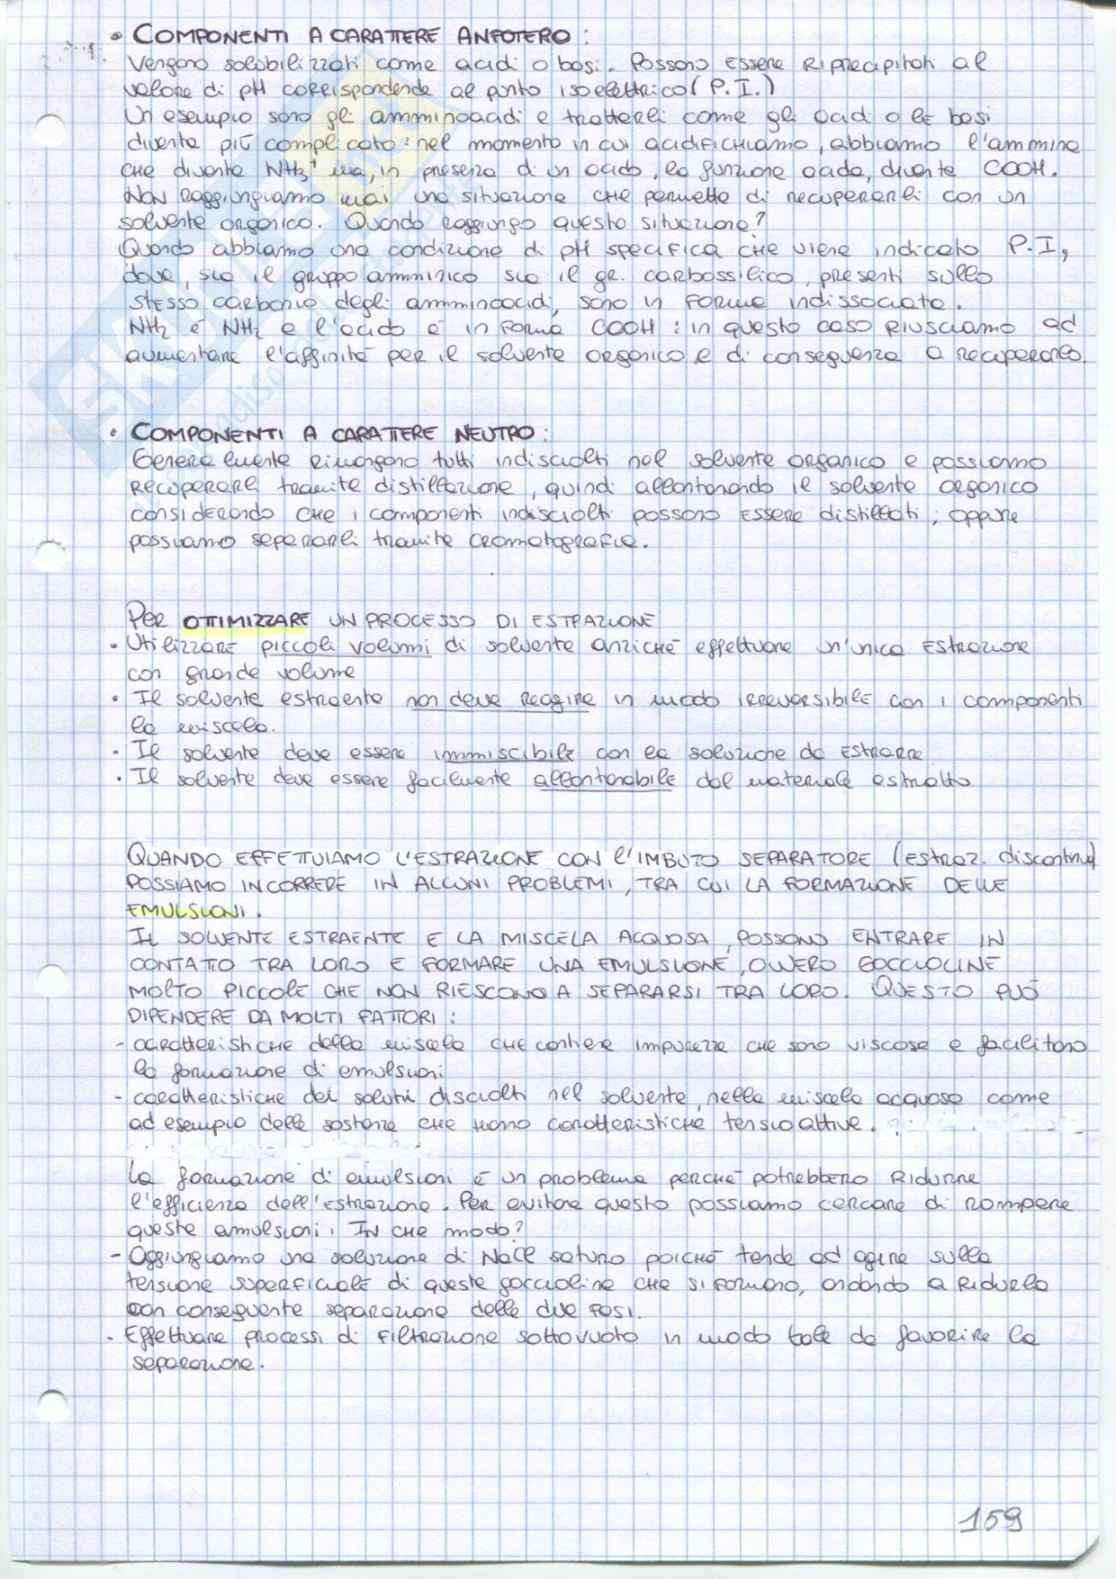 • COMPONENTI A CARATTERE ANFOTERO:
Vengono solubilizzati come acidi o basi. Possono essere riprecipitati al
valore di pH corrispondente al punto isoelettrico (P.I.)
Un esempio sono gli amminoacidi e trattarli come gli acidi o le basi
diventa più complicato: nel momento in cui acidifichiamo, abbiamo l'ammina
che diventa NH3+ ma, in presenza di un acido, la funzione acida, diventa COOH.
Non raggiungiamo mai una situazione che permette di recuperarli con un
solvente organico. Quando raggiungo questa situazione?
Quando abbiamo una condizione di pH specifica che viene indicata P.I,
dove, sia il gruppo amminico sia il gr. carbossilico, presenti sullo
stesso carbonio degli amminoacidi, sono in forma indissociata.
NH2 è NH2 e l'acido è in forma COOH: in questo caso riusciamo ad
aumentare l'affinità per il solvente organico e di conseguenza a recuperarlo.
• COMPONENTI A CARATTERE NEUTRO:
Generalmente rimangono tutti indisciolti nel solvente organico e possiamo
recuperarli tramite distillazione, quindi allontanando il solvente organico
considerando che i componenti indisciolti possono essere distillati; oppure
possiamo separarli tramite cromatografia.
PER OTTIMIZZARE UN PROCESSO DI ESTRAZIONE
• Utilizzare piccoli volumi di solvente anziché effettuare un'unica estrazione
con grande volume
• Il solvente estraente non deve reagire in modo irreversibile con i componenti
la miscela.
• Il solvente deve essere immiscibile con la soluzione da estrarre
• Il solvente deve essere facilmente allontanabile dal materiale estratto
QUANDO EFFETTUIAMO L'ESTRAZIONE CON L'IMBUTO SEPARATORE (estraz. discontinua)
POSSIAMO INCORRERE IN ALCUNI PROBLEMI, TRA CUI LA FORMAZIONE DELLE
EMULSIONI.
IL SOLVENTE ESTRAENTE E LA MISCELA ACQUOSA, POSSONO ENTRARE IN
CONTATTO TRA LORO E FORMARE UNA EMULSIONE, OVVERO GOCCIOLINE
MOLTO PICCOLE CHE NON RIESCONO A SEPARARSI TRA LORO. QUESTO PUÒ
DIPENDERE DA MOLTI FATTORI:
- caratteristiche della miscela che contiene impurezze che sono viscose e facilitano
la formazione di emulsioni
- caratteristiche dei soluti disciolti nel solvente, nella miscela acquosa come
ad esempio delle sostanze che hanno caratteristiche tensioattive.
La formazione di emulsioni è un problema perché potrebbero ridurre
l'efficienza dell'estrazione. Per evitare questo possiamo cercare di rompere
queste emulsioni. In che modo?
- Aggiungiamo una soluzione di NaCl saturo poiché tende ad agire sulla
tensione superficiale di queste goccioline che si formano, andando a ridurla
con conseguente separazione delle due fasi.
- Effettuare processi di filtrazione sottovuoto in modo tale da favorire la
separazione.
159